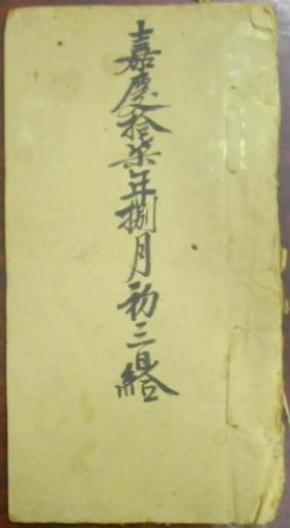 嘉慶拾柒年捌月初三日給